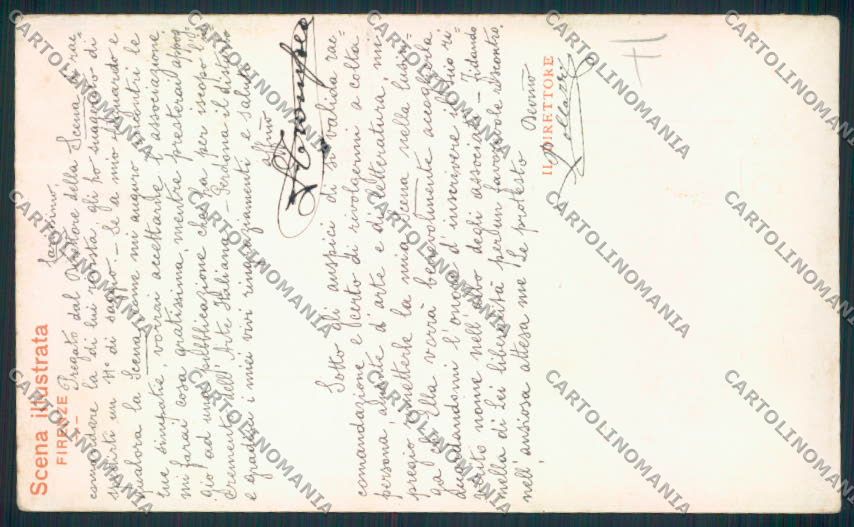 Scena illustrata
FIRENZE
Carissimo,
Pregato dal Direttore della Scena a rac-
comandare la di lui rivista, gli ho suggerito di
inviarti un N° di saggio. – Se a mio riguardo e
qualora la Scena come mi auguro incontri le
tue simpatie, vorrai accettarne l'associazione
mi farai cosa gratissima, mentre presterai appog-
gio ad una pubblicazione che ha per iscopo l'in-
cremento dell'Arte Italiana. – Perdona il disturbo
e gradisci i miei vivi ringraziamenti e saluti
Aff.mo
Sotto gli auspici di sì valida rac-
comandazione e certo di rivolgermi a colta
persona, amante d'arte e di letteratura, mi
pregio rimetterle la mia Scena nella lusin-
ga ch'Ella vorrà benevolmente accoglierla
accordandomi l'onore d'inscrivere il suo ri-
verito nome nell'albo degli associati. – Fidando
nella di Lei liberalità per un favorevole riscontro,
nell'ansiosa attesa me Le protesto
Dev.mo
IL DIRETTORE
Pollazzi
CARTOLINOMANIA